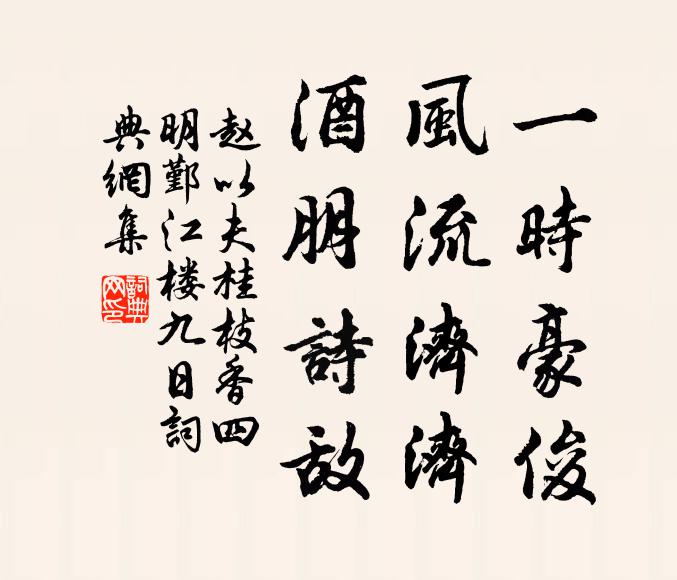 一時豪俊
風流濟濟
酒朋詩敌
赵以夫桂枝香四
明鄞江楼九日詞
典網集
詞典网印